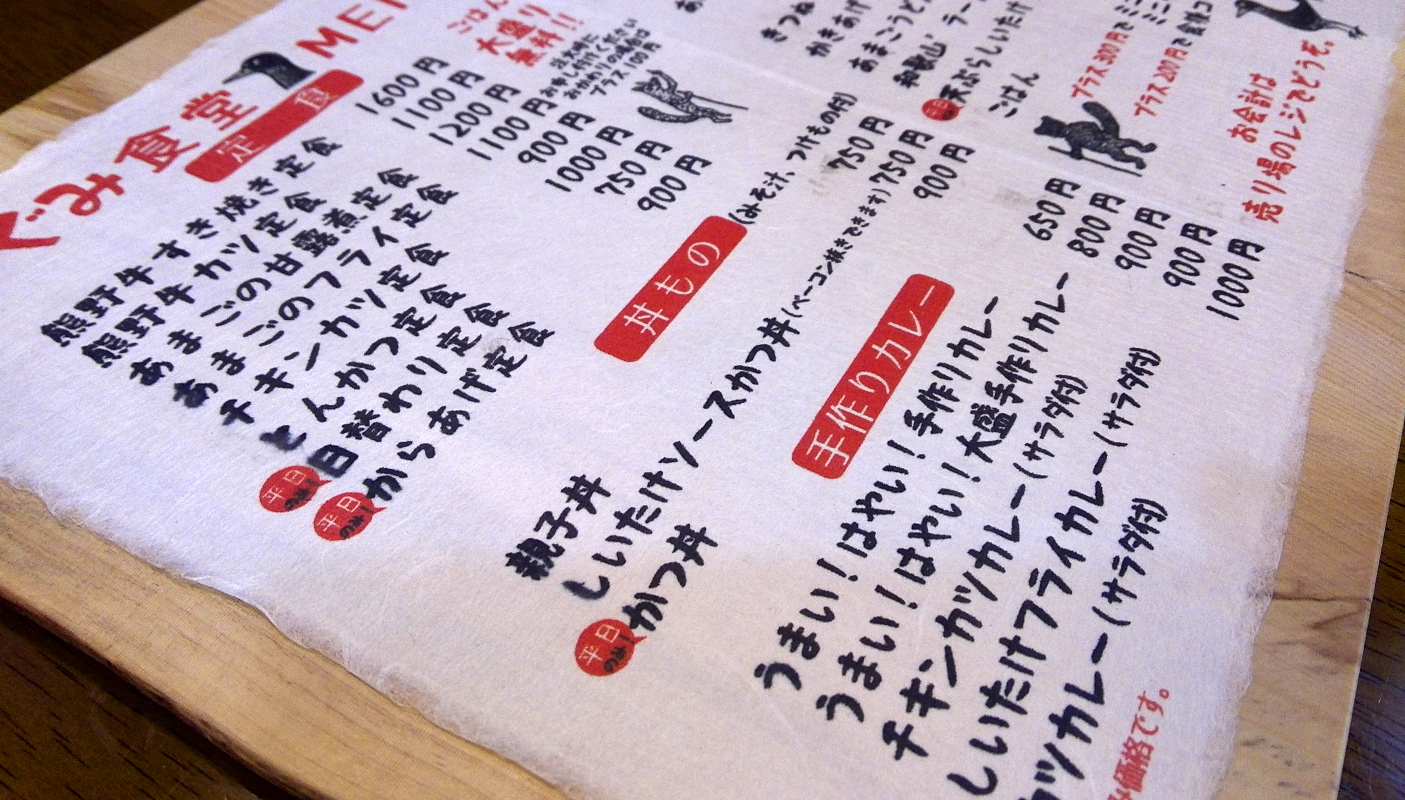 ぐみ食堂 MEN
定食
熊野牛すき焼き定食 1600円
熊野牛カツ定食 1100円
あまごの甘露煮定食 1200円
あまごのフライ定食 1100円
チキンカツ定食 900円
とんかつ定食 1000円
平日のみ! 日替わり定食 750円
平日のみ! からあげ定食 900円
ごはん
大盛り
無料!!
注文時に
お申し付けください
おかわりの場合は
プラス100円
丼もの (みそ汁、つけもの付)
親子丼 750円
しいたけソースかつ丼(ベーコン抜きできます) 750円
平日のみ! かつ丼 900円
きつね
かきあげ
あまごうどん
和歌山ラー
平日 天ぷらしいたけ
ごはん
プラス300円でミニ
プラス200円で食後コ
手作りカレー
うまい!はやい!手作りカレー 650円
うまい!はやい!大盛手作りカレー 800円
チキンカツカレー(サラダ付) 900円
しいたけフライカレー(サラダ付) 900円
カツカレー(サラダ付) 1000円
お会計は
売り場のレジでどうぞ。
み価格です。